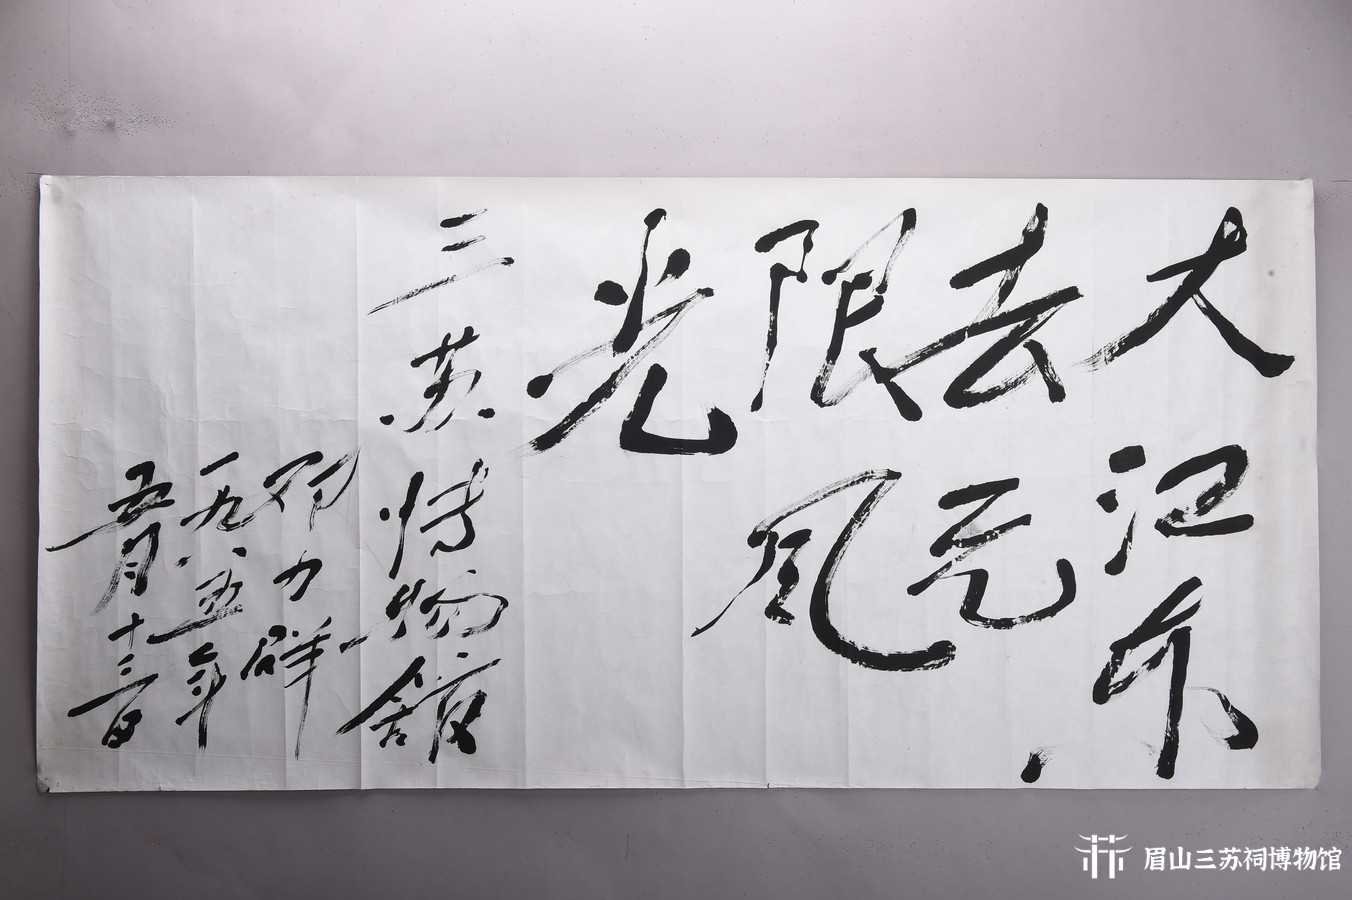 大江东
去无
限风
光
三苏博物馆
邓力群
一九八五年
五月十三日
眉山三苏祠博物馆